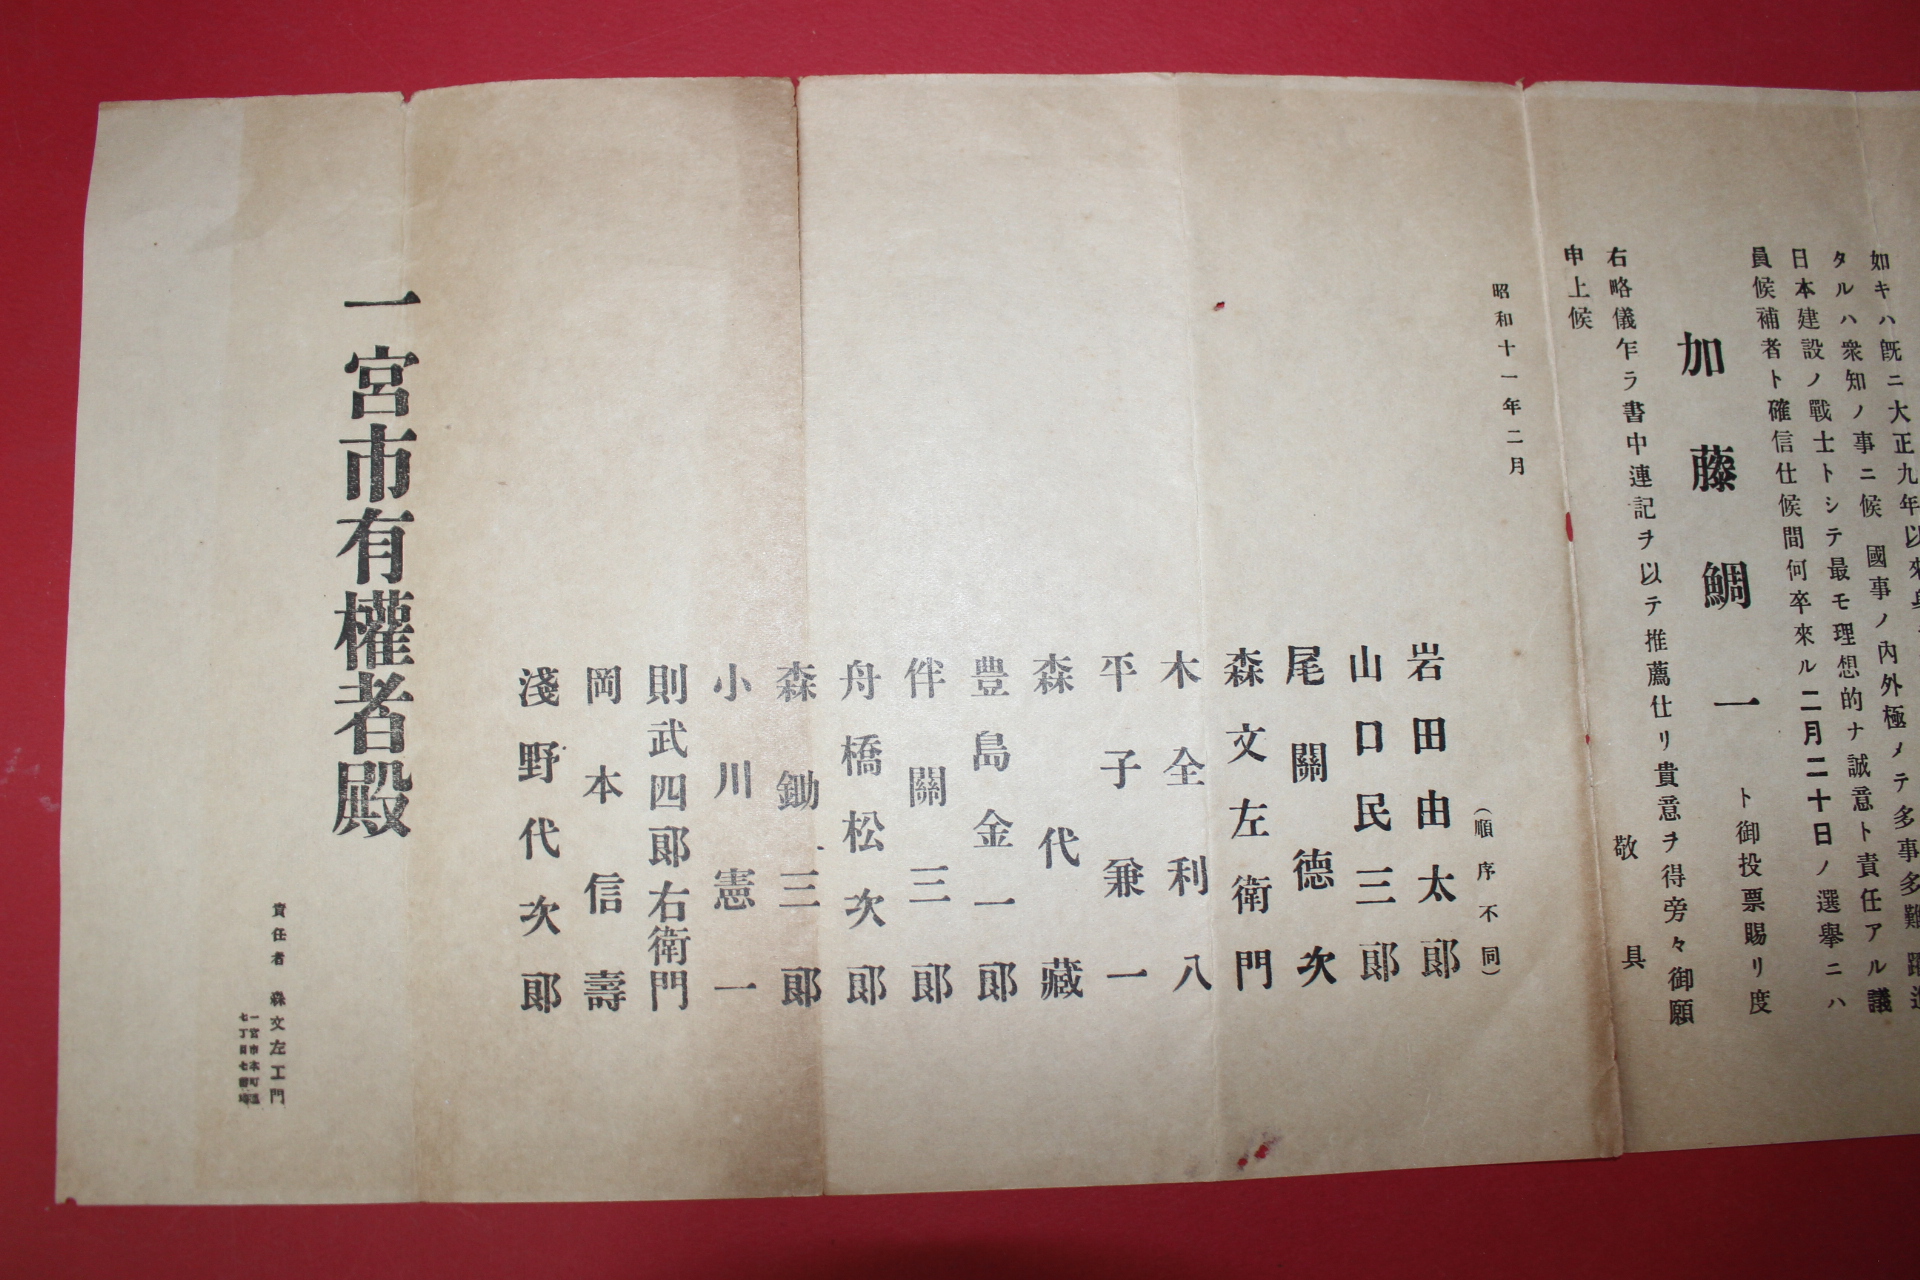 如キハ既ニ大正九年以來
タルハ衆知ノ事ニ候 國事ノ內外極メテ多事多難
日本建設ノ戰士トシテ最モ理想的ナ誠意ト責任アル議
員候補者ト確信仕候間何卒來ル二月二十日ノ選擧ニハ
加藤鯛一
ト御投票賜リ度
右略儀乍ラ書中連記ヲ以テ推薦仕リ貴意ヲ得旁々御願
申上候
敬具
昭和十一年二月
(順序不同)
岩田由太郎
山口民三郎
尾關德次
森文左衛門
木全利八
平子兼一
森代藏
豊島金一郎
伴關三郎
舟橋松次郎
森鋤三郎
小川憲一
則武四郎右衛門
岡本信壽
淺野代次郎
一宮市有權者殿
責任者 森文左エ門
一宮市本町通
七丁目七番地